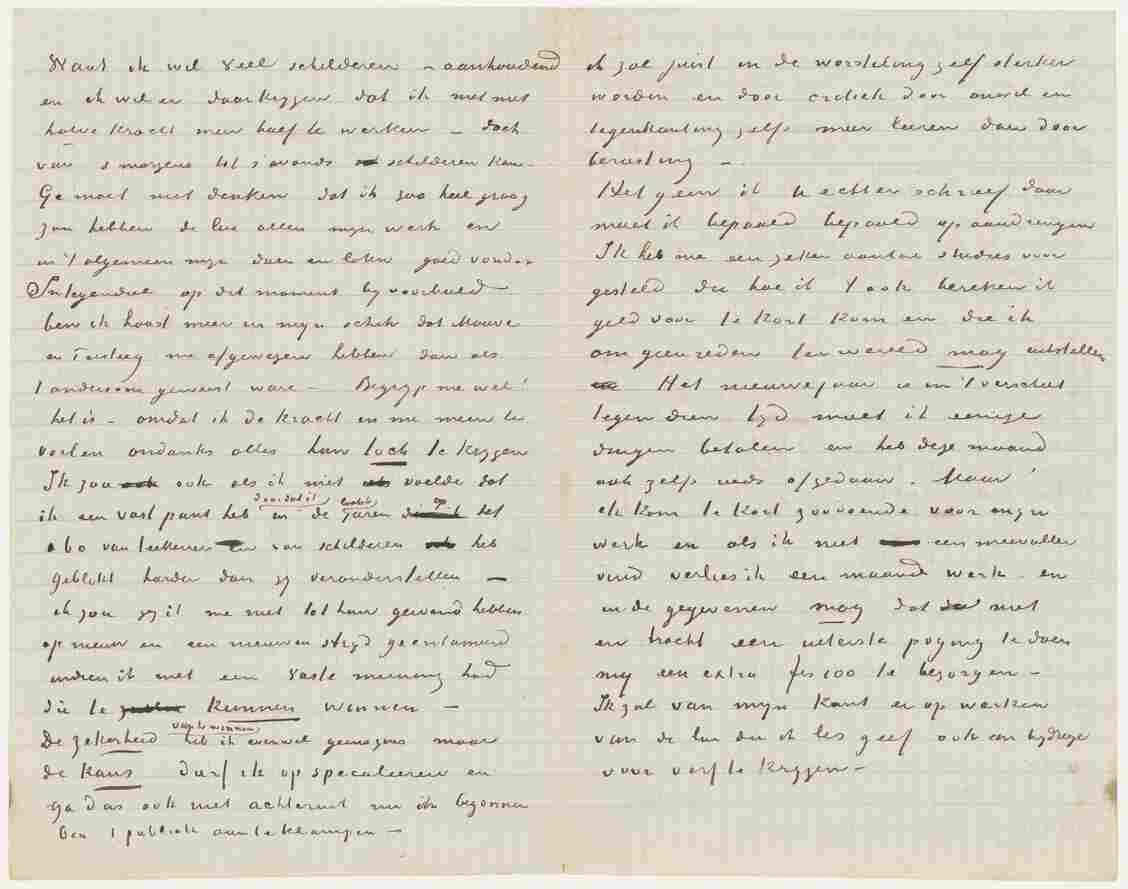 Want ik wil veel schilderen – aanhoudend
en ik wil er daar krijgen dat ik niet met
halve kracht meer hoef te werken – doch
van s'morgens tot s'avonds schilderen kan.
Ge moet niet denken dat ik zoo heel graag
zou hebben de lui allen mijn werk en
in 't algemeen mijn doen en laten goed vonden
Integendeel op dit moment bij voorbeeld –
ben ik haast meer in mijn schik dat Mauve
en Tersteeg me afgewezen hebben dan als
't andersom geweest ware – Begrijp me wel!
het is – omdat ik de kracht in me meen te
voelen ondanks alles hun toch te krijgen
Ik zou ook als ik niet voelde dat
ik een vast punt heb doordat ik en de jaren op het
abc van teekenen en van schilderen heb
geblokt harder dan zij veronderstellen –
ik zou zeg ik me niet tot hun gewend hebben
op nieuw en een nieuwen strijd geentameerd
indien ik niet een vaste meening had
die te kunnen winnen –
De zekerheid van te winnen heb ik evenwel geenszins maar
de kans durf ik op speculeeren en
ga dus ook niet achteruit nu ik begonnen
ben 't publiek aan te klampen –
ik zal juist in de worsteling zelf sterker
worden en door critiek door onwil en
tegenkanting zelfs meer leeren dan door
berusting –.
Het geen ik U echter schreef daar
moet ik bepaald bepaald op aandringen
Ik heb me een zeker aantal studies voor
gesteld die hoe ik 't ook bereken ik
geld voor te kort kom en die ik
om geen reden ter wereld mag uitstellen
Het nieuwejaar is in 't verschiet
tegen dien tijd moet ik eenige
dingen betalen en heb deze maand
ook zelfs reeds afgedaan. Maar!
ik kom te kort zoodoende voor mijn
werk en als ik niet een meevaller
vind verlies ik een maand werk. en
in de gegevenen mag dat niet
en tracht een uiterste poging te doen
mij een extra frs 100 te bezorgen –
Ik zal van mijn kant er op werken
van de lui die ik les geef ook een bijdrage
voor verf te krijgen –